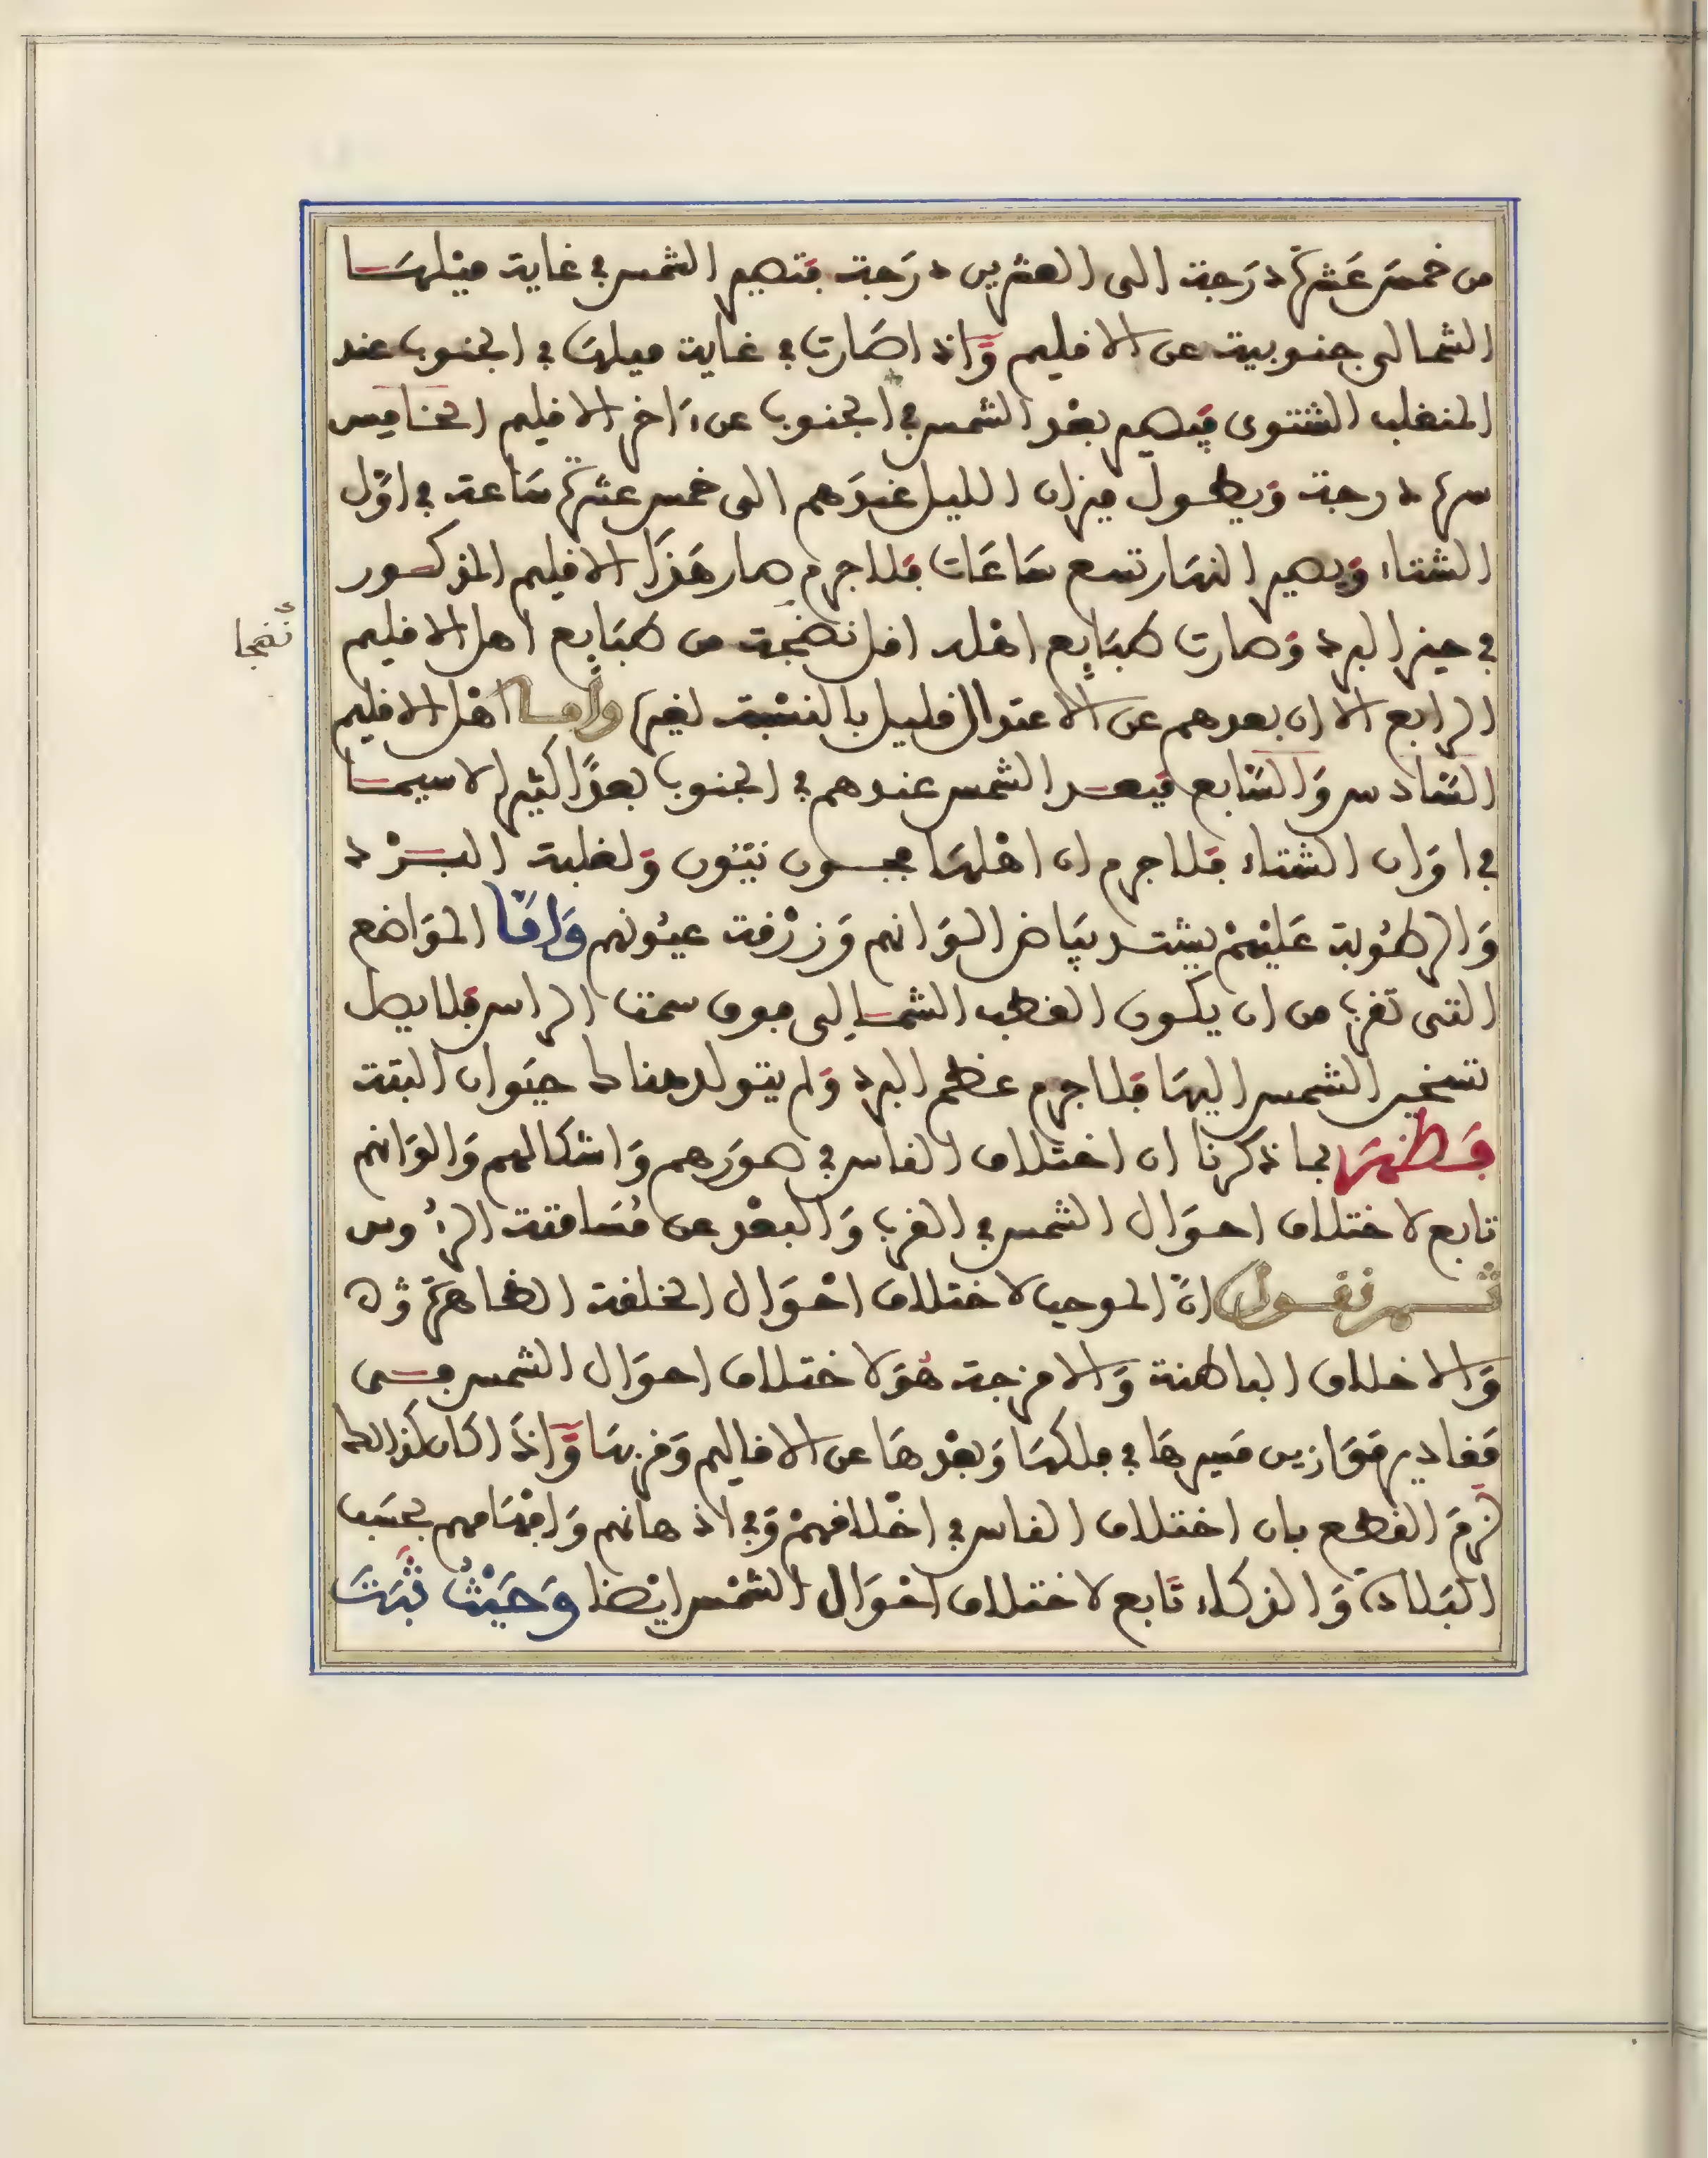 من خمسَ عَشرَة دَرَجة الى العشرين دَرَجة فتصير الشمس في غاية ميْلهَا
الشمالى جنوبية عن الاقليم وَّاذا صَارت في غاية ميلهَا في الجنوب عند
المنقلب الشتوى فيَصير بعْد الشمس في الجنوب عن ءَاخر الاقليم الخامِس
ستة درجة وَيطول ميزان الليل عندَهم الى خمس عشرة سَاعة في اوَّل
الشتاء وَيصير النهَار تسع سَاعَات فلا جرم صار هَذَا الاقليم المذكور
في حيز البرد وَصارت طبَايع اهْله اقل نضْجة من طبَايع اهل الاقليم
نُضجا
الرابع الا ان بعدهم عن الاعتدال قليل بالنسْبة لغيره وأما اهْل الاقليم
السَّادس وَالسَّابع فيَبعد الشمس عندهم في الجنوب بعدًا كثيرا لاسيما
في اوَان الشتاء فلا جرم ان اهْلهَا نيّئون وَلغلبة البرْد
وَالرطُوبة عَليْهمْ يشتد بيَاض الوَانهم وَزرْقة عيُونهم وَامَّا المَوَاضع
التى تقرب من ان يكون القطب الشمالى فوق سمت الراس فلا يصل
تسخير الشمس اليهَا فلا جرم عظم البرد وَلم يتولد هناك حيَوان البتة
فَظهَرَ بما ذكرنا ان اختلاف الناس في صوَرهم وَاشكالهم وَالوَانهم
تابع لاختلاف احوَال الشمس في القرب وَالبعْد عن مُسَامتة الرءُوس
ثم نقول انَّ الموجب لاختلاف احْوَال الخلقة الظاهرَة وَٰن
وَالاخلاق الباطنة وَالامزجة هُوَ لاختلاف احوَال الشمس فى
مَقادير مَوَازين مَسِيرهَا في فلكهَا وَبعْدهَا عن الاقاليم وَقربهَا وَّاذَا كان كذالك
لزمَ القطع بان اختلاف الناس في اخْلاقهمْ وَفي اذهانهم وَافهَامهم بحسَب
البَلادة وَالذكاء تَابع لاختلاف احْوَال الشمْس ايْضا وَحَيْثُ ثَبَتَ